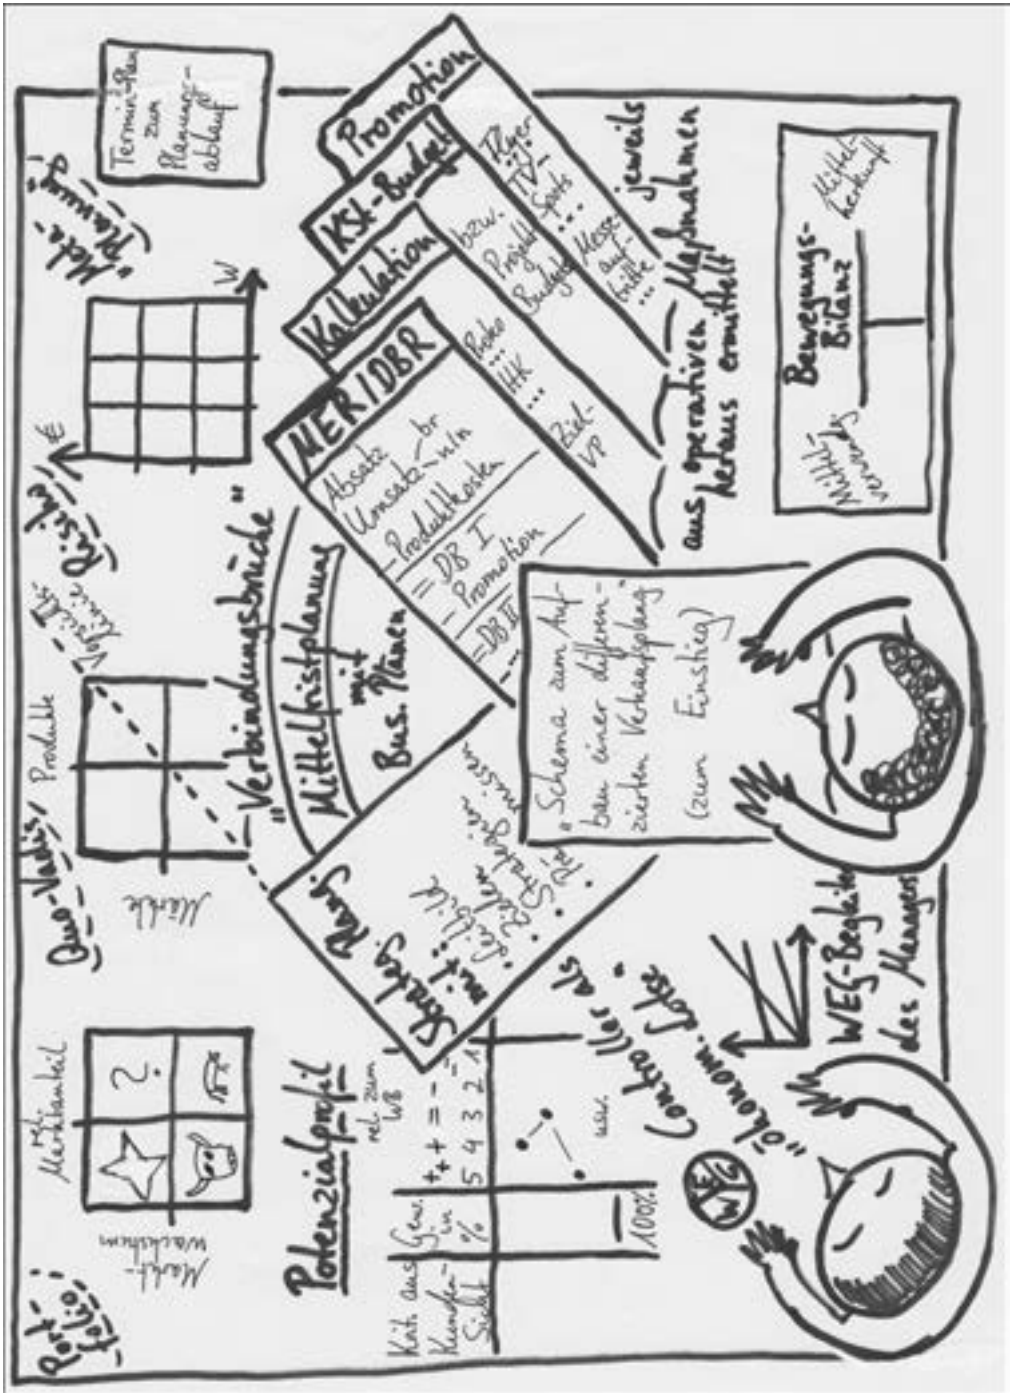 Port-
folio
Markt-
wachstum
rel.
Marktanteil
?
"Quo-Vadis"
Märkte
Produkte
Vorsichts-
linie
Risiko
€
W
"Meta-
Planung"
Termin-Plan
zum
Planungs-
ablauf
Potenzialprofil
rel. zum
WB
Krit. aus
Kunden-
Sicht
Gew.
in
%
++ + = - =
5 4 3 2 1
100%
usw.
"Verbindungsbrücke"
Mittelfristplanung
mit
Bus. Plänen
Strateg. Plang.
mit:
• Leitbild
• Ziele
• Strategien
• Prämissen
MER/DBR
Absatz
Umsatz br
n/n
- Produktkosten
= DB I
- Promotion
= DB II
...
Kalkulation
...
HK
...
Ziel-
VP
KSt-Budget
bzw.
Projekt
Budget
Promotion
Flyer
TV-
Spots
...
Messe-
auf-
tritte
...
jeweils
aus operativen Maßnahmen
heraus ermittelt
"Schema zum Auf-
bau einer differen-
zierten Verkaufsplang."
(zum Einstieg)
Controller als
"ökonom. Lotse"
WEG
WEG-Begleiter
des Managers
Bewegungs-
Bilanz
Mittel-
verwendg
Mittel-
herkunft